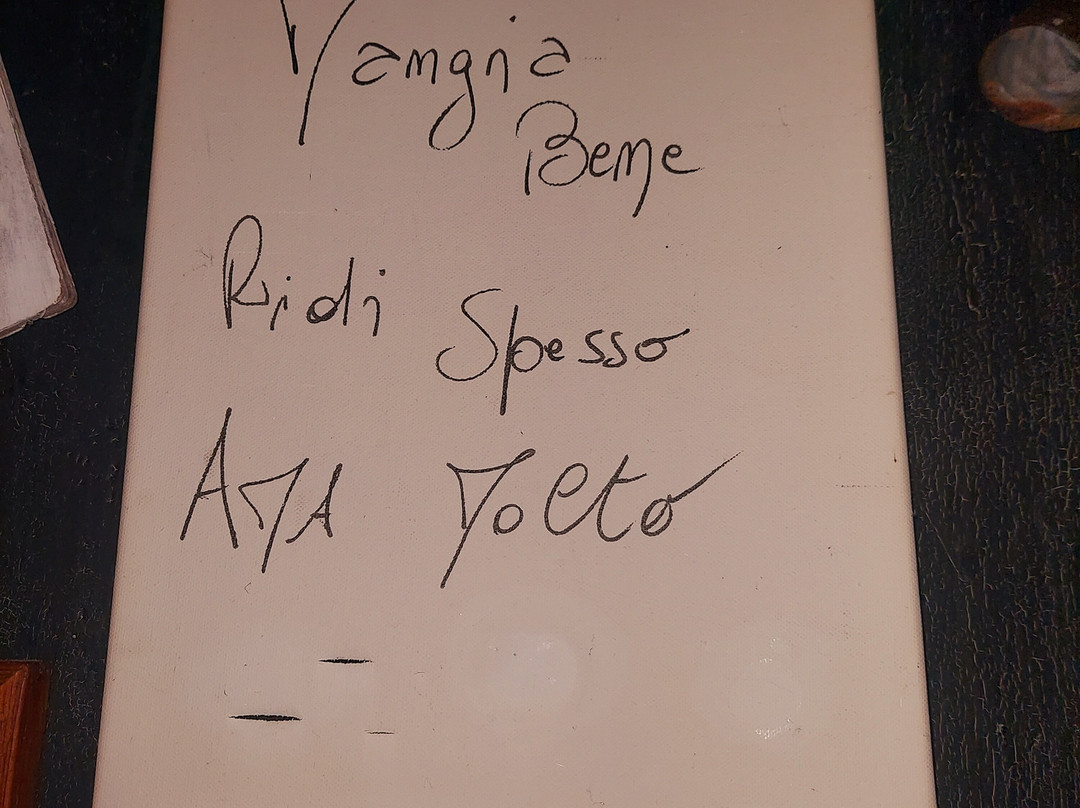 Mangia
Bene
Ridi Spesso
AMA Molto